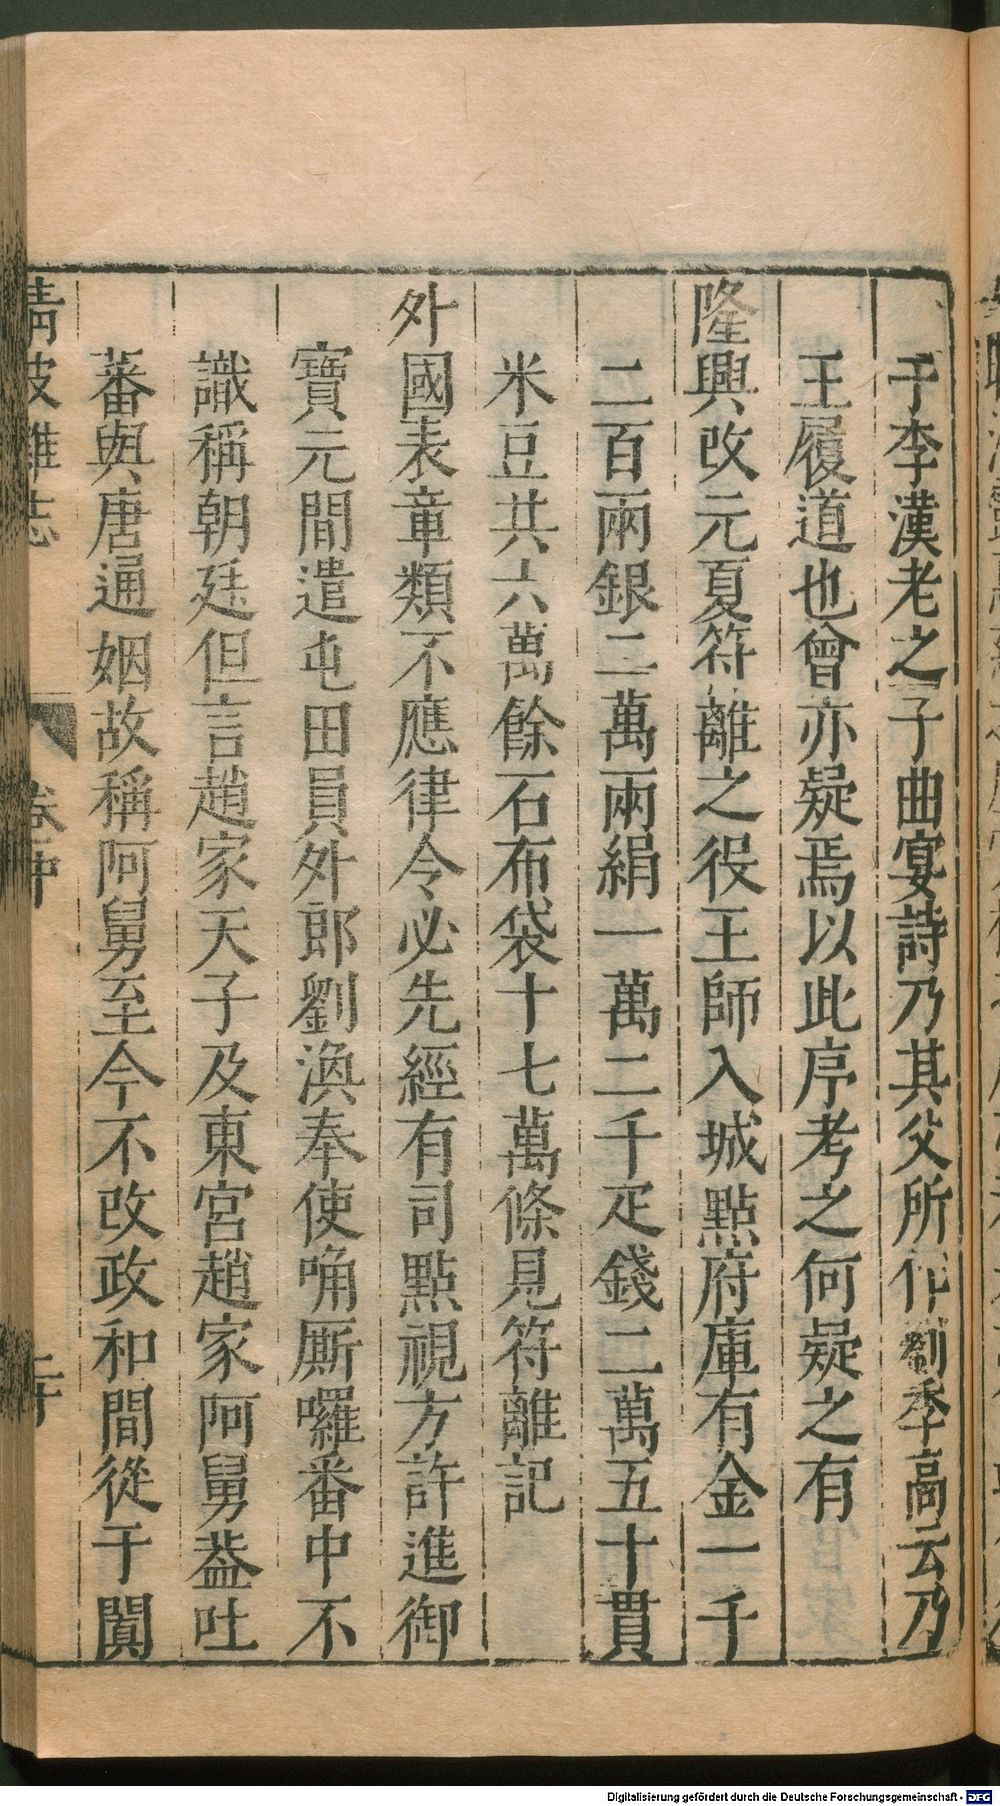 于李漢老之子曲宴詩乃其父所作劉季高云乃
王履道也曾亦疑焉以此序考之何疑之有
隆興改元夏符離之役王師入城點府庫有金一千
二百兩銀二萬兩絹一萬二千疋錢二萬五十貫
米豆共六萬餘石布袋十七萬條見符離記
外國表章類不應律令必先經有司點視方許進御
寶元間遣屯田員外郎劉渙奉使唃厮囉番中不
識稱朝廷但言趙家天子及東宮趙家阿舅葢吐
蕃與唐通姻故稱阿舅至今不改政和間從于闐
清波雜志
Digitalisierung gefördert durch die Deutsche Forschungsgemeinschaft - DFG